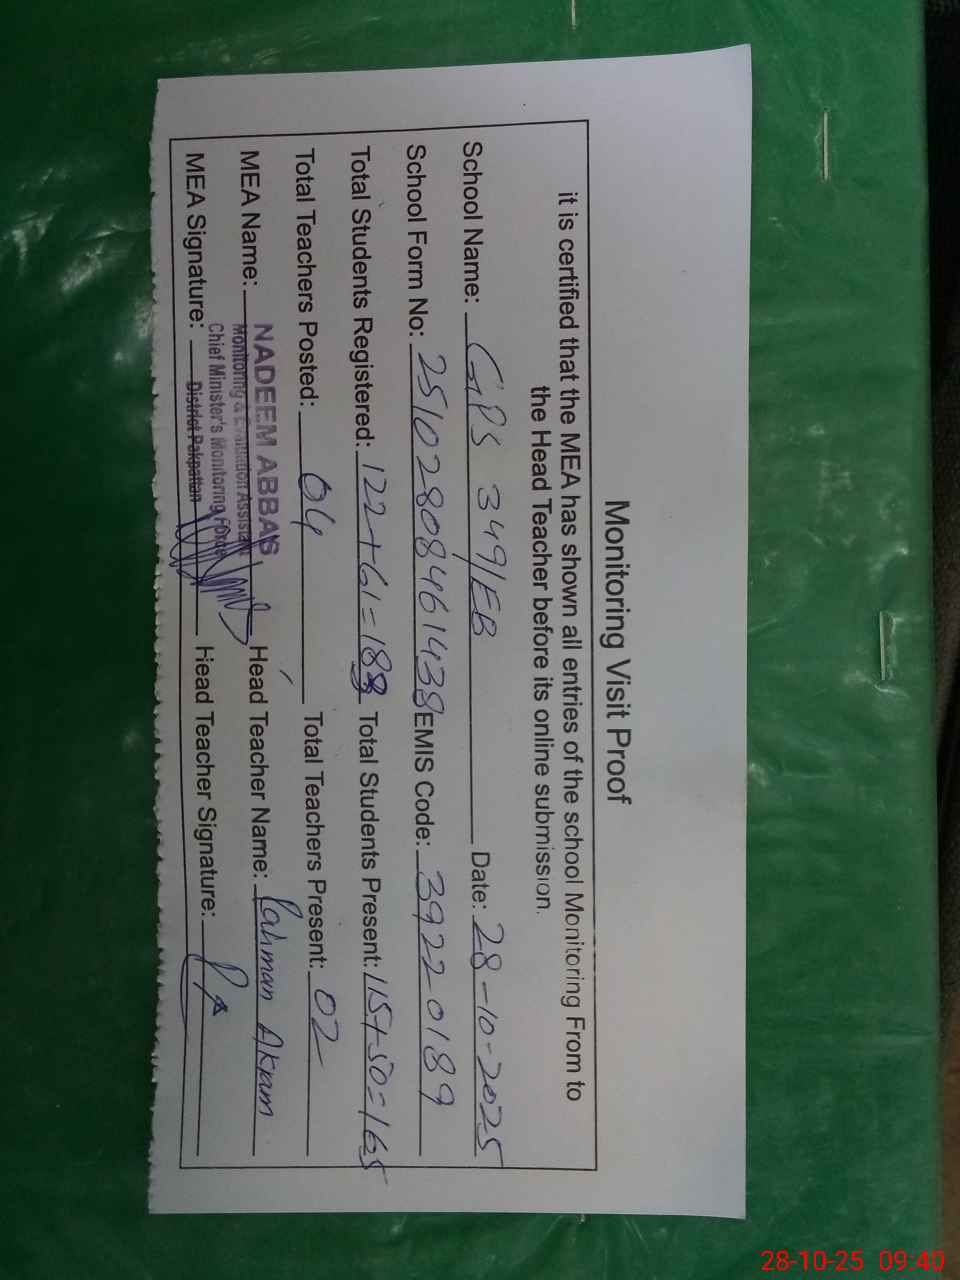 Monitoring Visit Proof
it is certified that the MEA has shown all entries of the school Monitoring From to
the Head Teacher before its online submission.
School Name: GPS 349/EB Date: 28-10-2025
School Form No: 25102808461438 EMIS Code: 39220189
Total Students Registered: 122+61=183 Total Students Present: 115+50=165
Total Teachers Posted: 04 Total Teachers Present: 02
MEA Name: NADEEM ABBAS Head Teacher Name: Akram
Monitoring & Evaluation Assistant
Chief Minister's Monitoring Force
MEA Signature: District Pakpattan Head Teacher Signature:
28-10-25 09:40